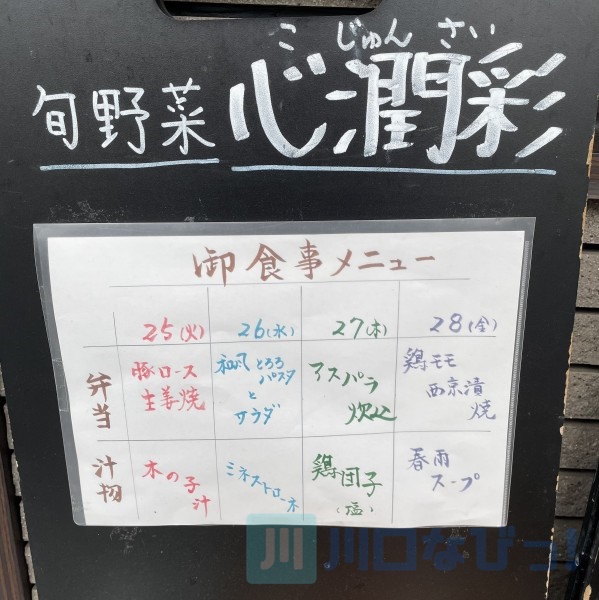 こ じゅん さい
旬野菜 心潤彩
御食事メニュー
25(火) 26(水) 27(木) 28(金)
弁当
豚ロース
生姜焼
和風とろろ
パスタ
と
サラダ
アスパラ
炊込
鶏モモ
西京漬
焼
汁物
木の子
汁
ミネストローネ
鶏団子
(塩)
春雨
スープ
川口なびっ!